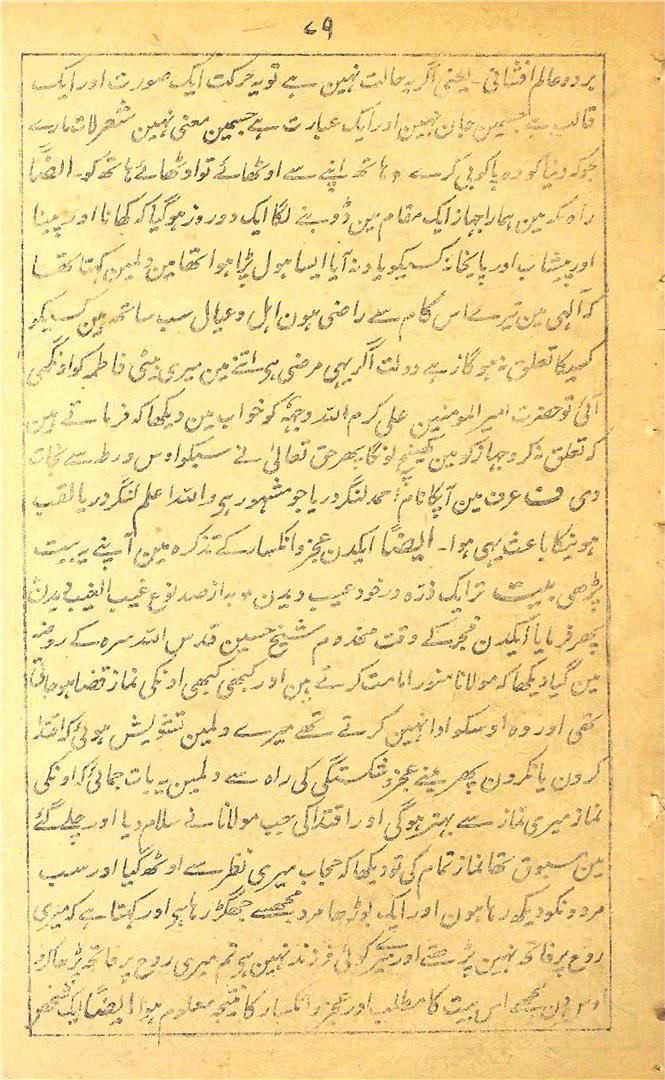 ۷۹
بر دو عالم افشانی ۔ یعنی اگر یہ حالت نہین ہے تو یہ حرکت ایک صورت اور ایک
قالب ہے جسمین جان نہین اور ایک عبارت ہے جسمین معنی نہین شعر لات مارے
جو کہ دنیا کو وہ پاکوبی کرے ہاتھ اپنے سے اوٹھائے تو اوٹھائے ہاتھ کو ۔ ایضًا
راہ مکہ مین ہمارا جہاز ایک مقام مین ڈوبنے لگا ایک دو روز ہو گیا کہ کھانا اور پینا
اور پیشاب اور پایخانہ کسیکو یاد نہ آیا ایسا ہول پڑا ہوا تھا مین دلمین کہتا تھا
کہ آلہی مین تیرے اس کام سے راضی ہون اہل و عیال سب ساتھ ہین کسیکو
کسیکا تعلق نہ ہو گا زہے دولت اگر یہی مرضی ہی اتنے مین میری بیٹی فاطمہ کو اونگھی
آئی تو حضرت امیر المومنین علی کرم اللہ وجہہٗ کو خواب مین دیکھا کہ فرماتے ہین
کہ تعلق نہ کرو جہاز کو مین کھینچ لونگا پھر حق تعالیٰ نے سبکو اوس ورطہ سے نجات
دی ف عرف مین آپکا نام احمد لنگر دریا جو مشہور ہی واللہ اعلم لنگر دریا لقب
ہونیکا باعث یہی ہوا ۔ ایضًا ایکدن عجز و انکسار کے تذکرہ مین آپنے یہ بیت
پڑھی بیت ترا یک ذرہ در خود عیب دیدن ٭ بہ از صد نوع غیب الغیب دیدن
پھر فرمایا ایکدن فجر کے وقت مخدوم شیخ حسین قدس اللہ سرہ کے روضہ
مین گیا دیکھا کہ مولانا منور امامت کرتے ہین اور کبھی کبھی اونکی نماز قضا ہو جاتی
تھی اور وہ اوسکو ادا نہین کرتے تھے میرے دلمین تشویش ہوئی کہ اقتدا
کرون یا نکرون پھر مینے عجز و شکستگی کی راہ سے دلمین یہ بات جمائی کہ اونکی
نماز میری نماز سے بہتر ہوگی اور اقتدا کی جب مولانا نے سلام دیا اور چلے گئے
مین مسبوق تھا نماز تمام کی تو دیکھا کہ حجاب میری نظر سے اوٹھ گیا اور سب
مردونکو دیکھ رہا ہون اور ایک بوڑھا مرد مجھسے جھگڑ رہا ہی اور کہتا ہے کہ میری
روح پر فاتحہ نہین پڑھتے اور میرے کوئی فرزند نہین ہی تم میری روح پر فاتحہ پڑھا کرو
اوس دن مجھے اس بیت کا مطلب اور عجز و انکسار کا نتیجہ معلوم ہوا ایضًا ایک شخص